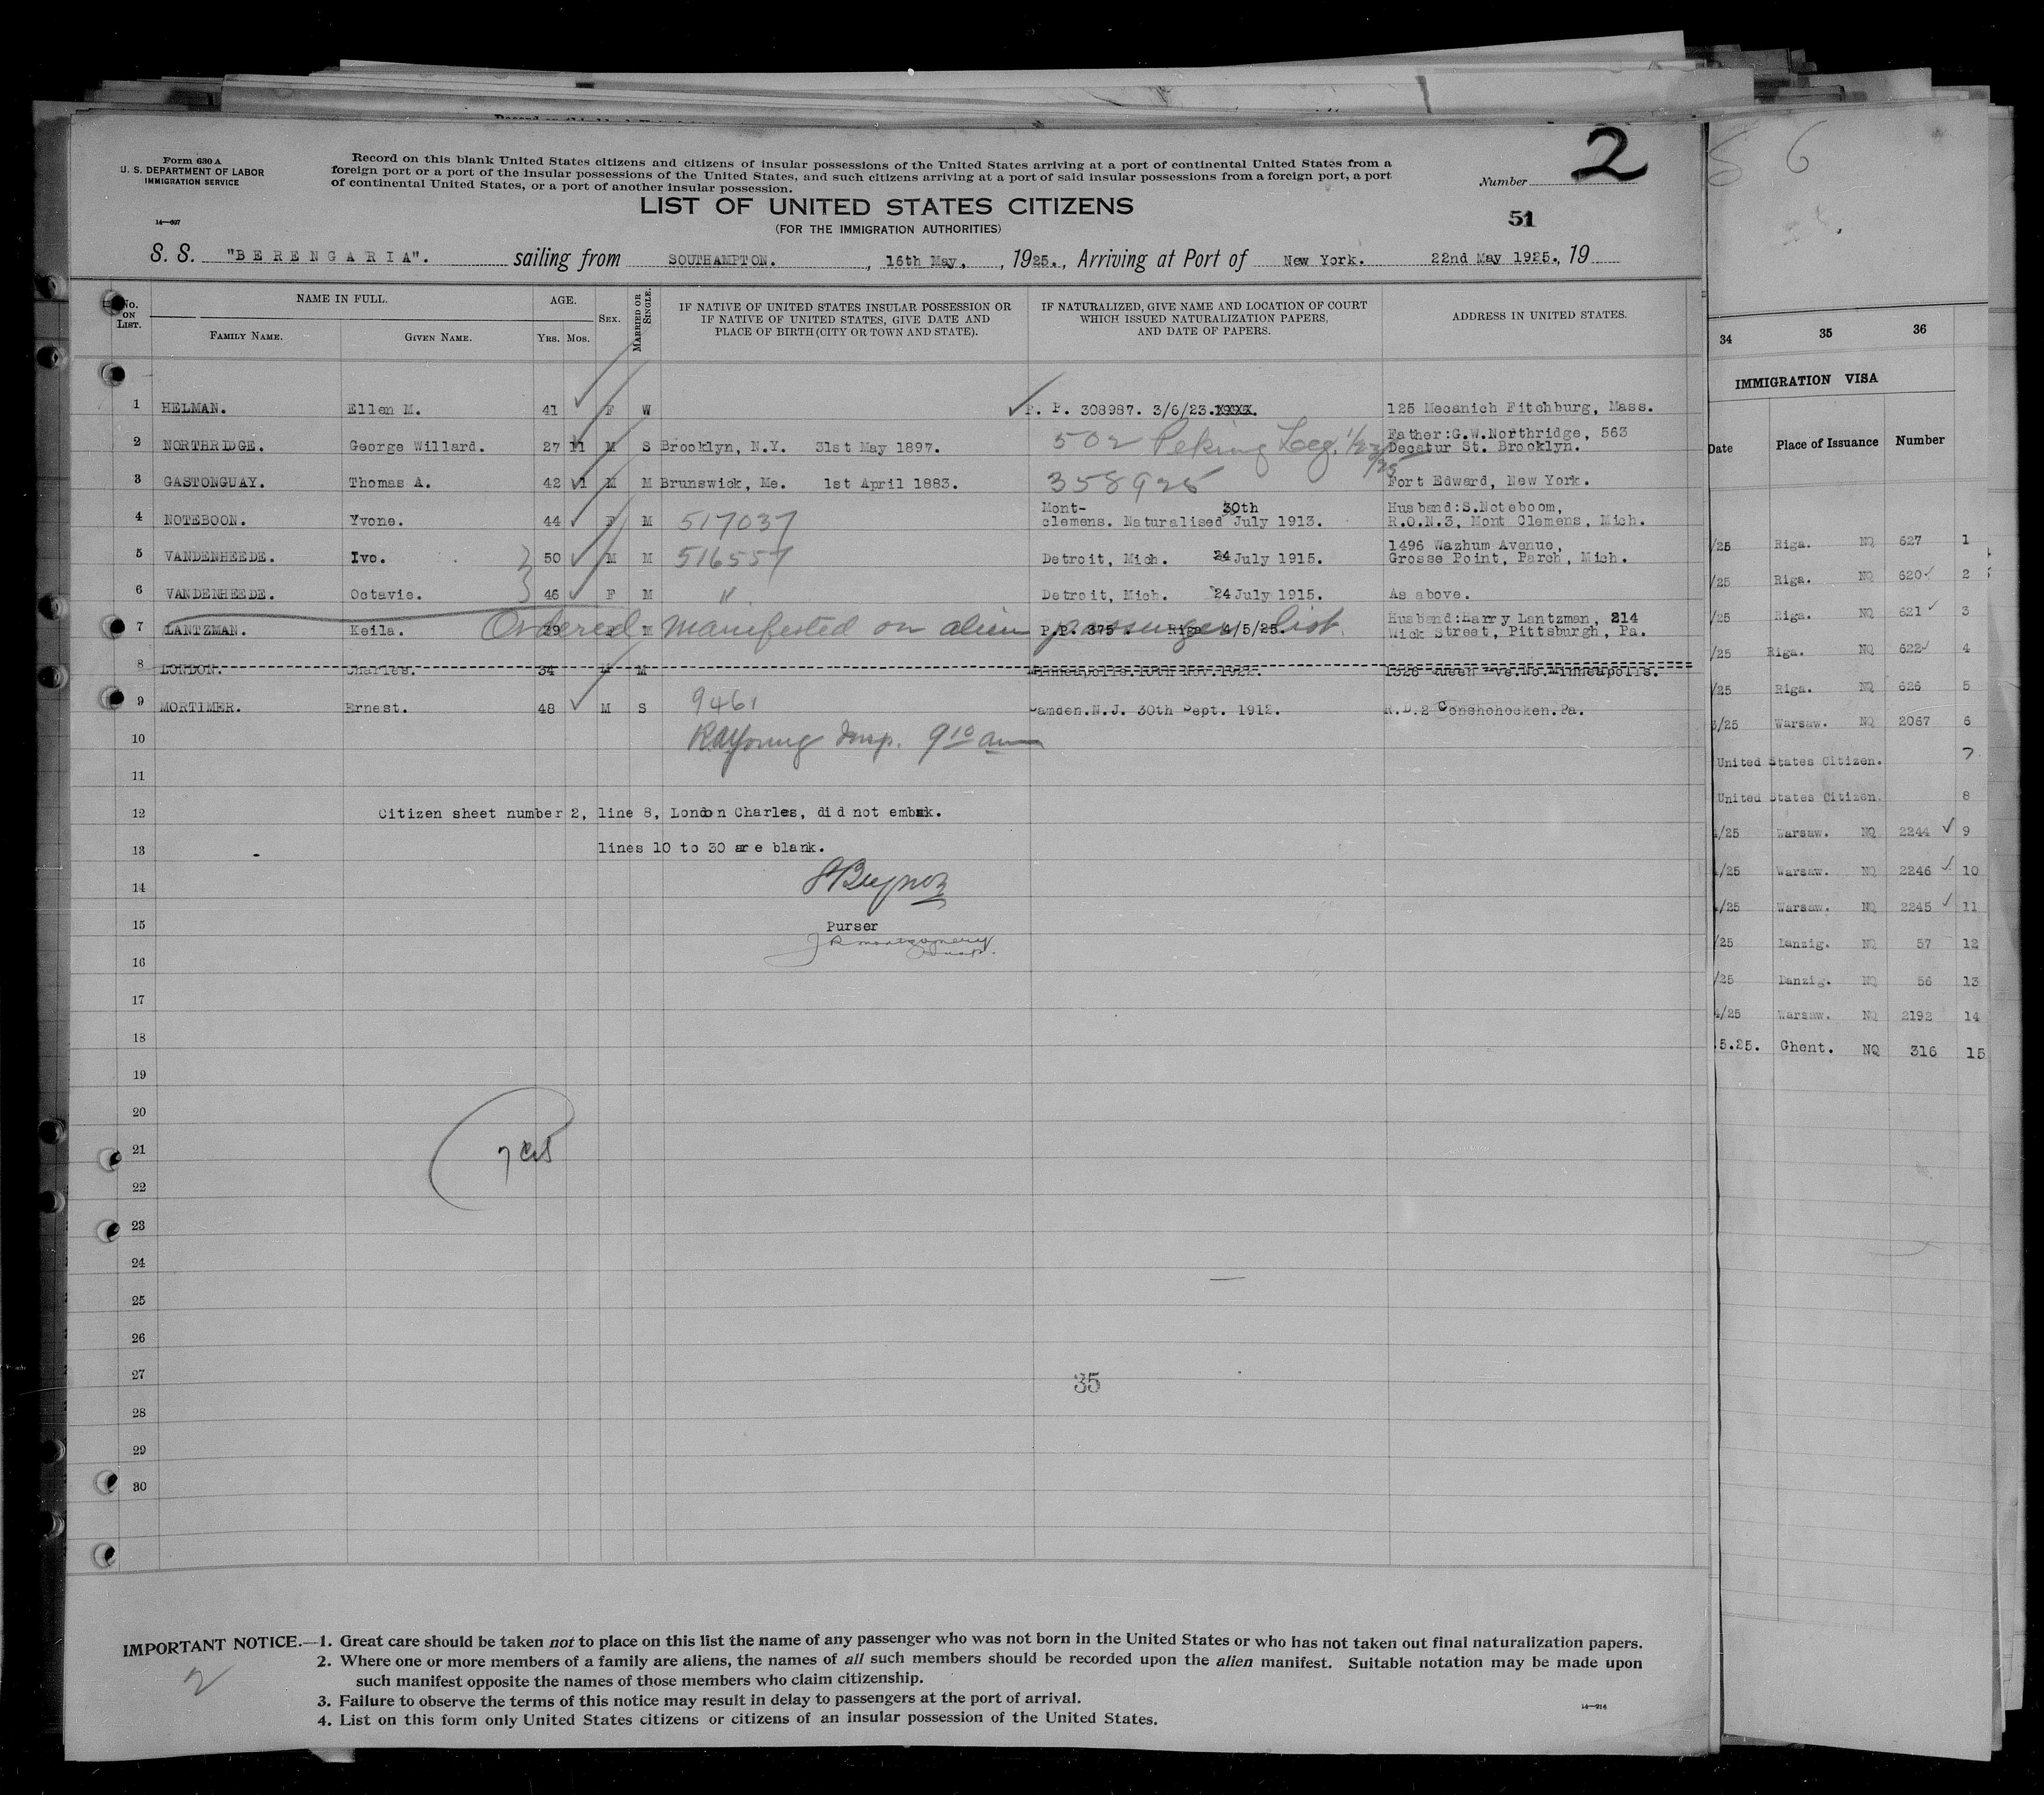 Form 630 A
U. S. DEPARTMENT OF LABOR
IMMIGRATION SERVICE
14—697
Record on this blank United States citizens and citizens of insular possessions of the United States arriving at a port of continental United States from a
foreign port or a port of the insular possessions of the United States, and such citizens arriving at a port of said insular possessions from a foreign port, a port
of continental United States, or a port of another insular possession.
Number 2
LIST OF UNITED STATES CITIZENS
(FOR THE IMMIGRATION AUTHORITIES)
51
S. S. "BERENGARIA". sailing from SOUTHAMPTON. , 16th May. , 1925., Arriving at Port of New York. 22nd May 1925., 19
No. ON LIST.
NAME IN FULL.
FAMILY NAME. GIVEN NAME.
AGE.
YRS. MOS.
SEX.
MARRIED OR SINGLE.
IF NATIVE OF UNITED STATES INSULAR POSSESSION OR
IF NATIVE OF UNITED STATES, GIVE DATE AND
PLACE OF BIRTH (CITY OR TOWN AND STATE).
IF NATURALIZED, GIVE NAME AND LOCATION OF COURT
WHICH ISSUED NATURALIZATION PAPERS,
AND DATE OF PAPERS.
ADDRESS IN UNITED STATES.
1 HELMAN. Ellen M. 41 F W P. P. 308987. 3/6/23. 125 Mecanich Fitchburg, Mass.
2 NORTHRIDGE. George Willard. 27 11 M S Brooklyn, N.Y. 31st May 1897. 502 Peking Leg. Father:G.W.Northridge, 563
Decatur St. Brooklyn.
3 GASTONGUAY. Thomas A. 42 1 M M Brunswick, Me. 1st April 1883. 358925 Fort Edward, New York.
4 NOTEBOON. Yvone. 44 F M 517037 Mont-
clemens. Naturalised 30th July 1913. Husband:S.Noteboom,
R.O.N.3, Mont Clemens, Mich.
5 VANDENHEEDE. Ivo. 50 M M 516557 Detroit, Mich. 24 July 1915. 1496 Wazhum Avenue,
Grosse Point, Parch, Mich.
6 VANDENHEEDE. Octavie. 46 F M " Detroit, Mich. 24 July 1915. As above.
7 LANTZMAN. Keila. 39 F M P.P. 375. Riga 4/5/25. Husband:Harry Lantzman, 214
Wick Street, Pittsburgh, Pa.
Ordered manifested on alien passenger list
8 LONDON. Charles. 34 M M Minneapolis. 10th Nov. 1922. 1326 Queen Ave.No.Minneapolis.
9 MORTIMER. Ernest. 48 M S 9461 Camden.N.J. 30th Sept. 1912. R.D.2 Conshohocken.Pa.
10 RAYoung Insp. 9 10 am
11
12 Citizen sheet number 2, line 8, London Charles, did not embark.
13 lines 10 to 30 are blank.
14
15 Purser
J R Montgomery
16
17
18
19
20
21 7 cit
22
23
24
25
26
27 35
28
29
30
IMPORTANT NOTICE.—1. Great care should be taken not to place on this list the name of any passenger who was not born in the United States or who has not taken out final naturalization papers.
2. Where one or more members of a family are aliens, the names of all such members should be recorded upon the alien manifest. Suitable notation may be made upon
such manifest opposite the names of those members who claim citizenship.
3. Failure to observe the terms of this notice may result in delay to passengers at the port of arrival.
4. List on this form only United States citizens or citizens of an insular possession of the United States.
2
14—216
6
34 35 36
IMMIGRATION VISA
Date Place of Issuance Number
/25 Riga. NQ 627 1
/25 Riga. NQ 620 2
/25 Riga. NQ 621 3
/25 Riga. NQ 622 4
/25 Riga. NQ 626 5
/25 Warsaw. NQ 2067 6
United States Citizen. 7
United States Citizen. 8
/25 Warsaw. NQ 2244 9
/25 Warsaw. NQ 2246 10
/25 Warsaw. NQ 2245 11
/25 Danzig. NQ 57 12
/25 Danzig. NQ 56 13
/25 Warsaw. NQ 2192 14
.5.25. Ghent. NQ 316 15